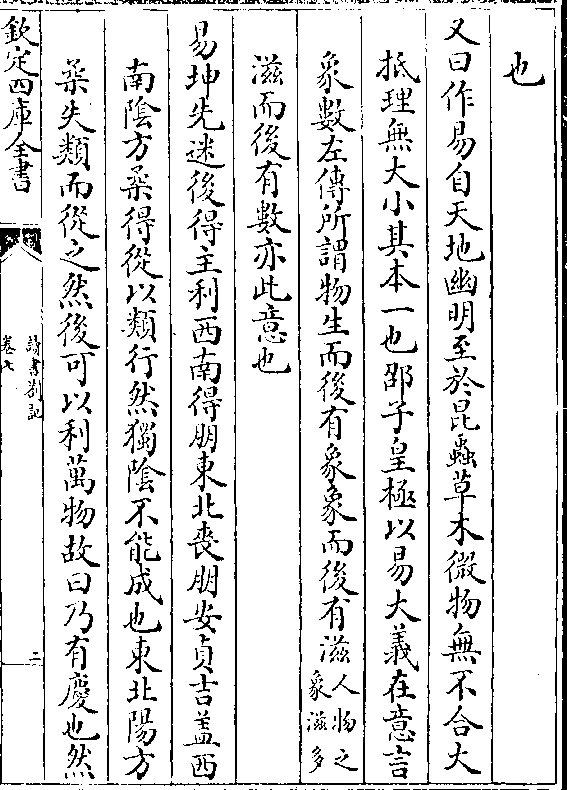 也
又曰作易自天地幽明至於昆蟲草木微物無不合大
抵理無大小其本一也邵子皇極以易大義在意言
象數左傳所謂物生而後有象象而後有滋人物之
象滋多
滋而後有數亦此意也
易坤先迷後得主利西南得朋東北喪朋安貞吉蓋西
南陰方柔得從以類行然獨陰不能成也東北陽方
柔失類而從之然後可以利萬物故曰乃有慶也然
欽定四庫全書
讀書劄記
卷七
二